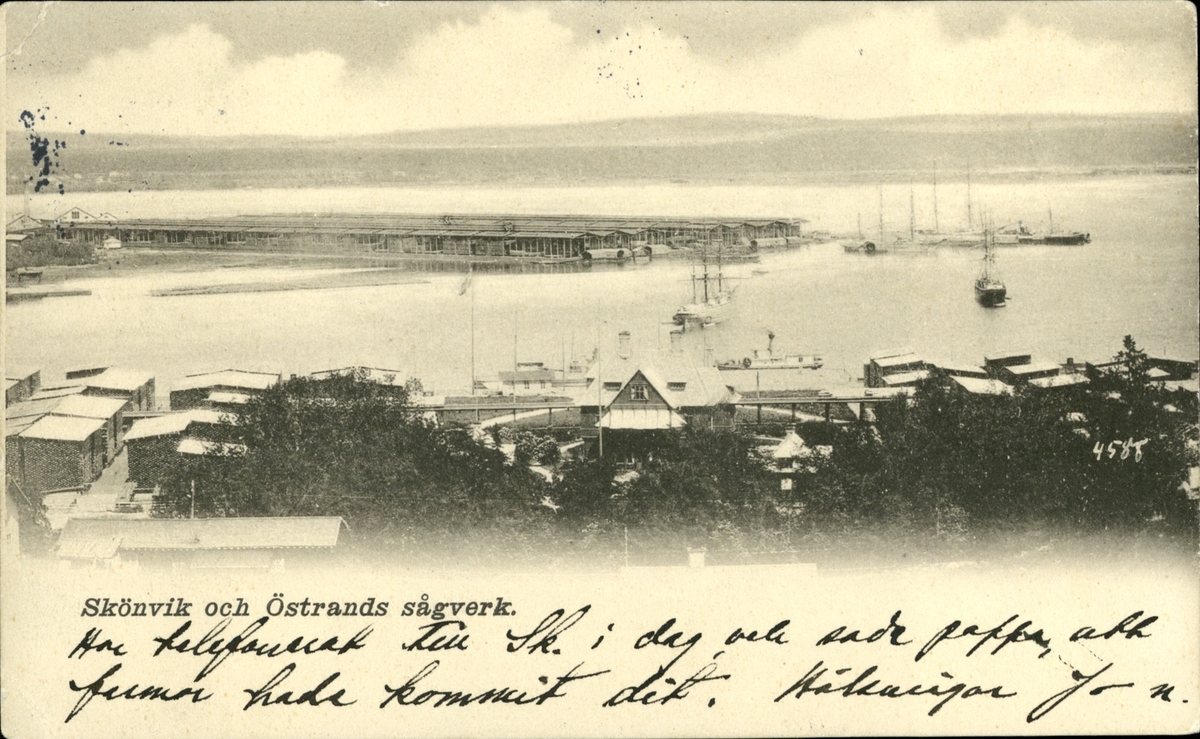 4588
Skönvik och Östrands sågverk.
Har telefonerat till Sk. i dag och sade pappa, att
farmor hade kommit dit. Hälsningar